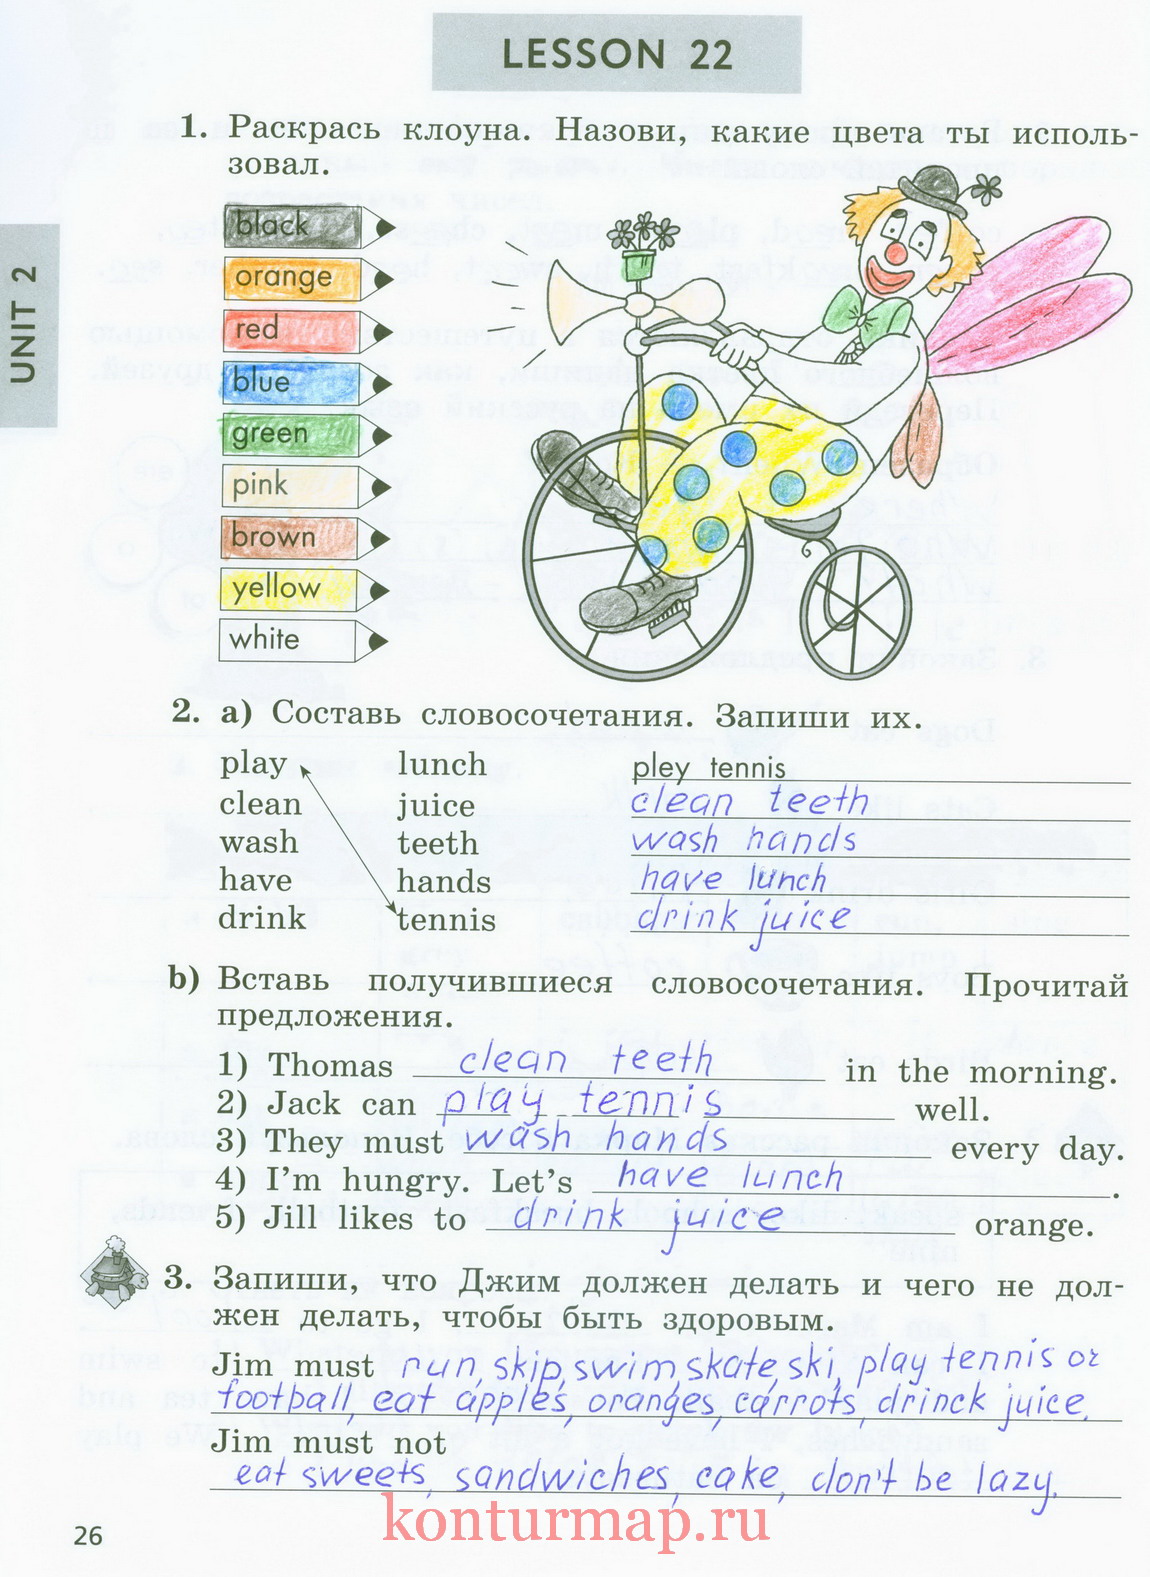 LESSON 22
1. Раскрась клоуна. Назови, какие цвета ты исполь-
зовал.
UNIT 2
black
orange
red
blue
green
pink
brown
yellow
white
2. a) Составь словосочетания. Запиши их.
play lunch pley tennis
clean juice clean teeth
wash teeth wash hands
have hands have lunch
drink tennis drink juice
b) Вставь получившиеся словосочетания. Прочитай
предложения.
1) Thomas clean teeth in the morning.
2) Jack can play tennis well.
3) They must wash hands every day.
4) I'm hungry. Let's have lunch.
5) Jill likes to drink juice orange.
3. Запиши, что Джим должен делать и чего не дол-
жен делать, чтобы быть здоровым.
Jim must run, skip, swim, skate, ski, play tennis or
football, eat apples, oranges, carrots, drinck juice.
Jim must not
eat sweets, sandwiches, cake, don't be lazy.
26
konturmap.ru